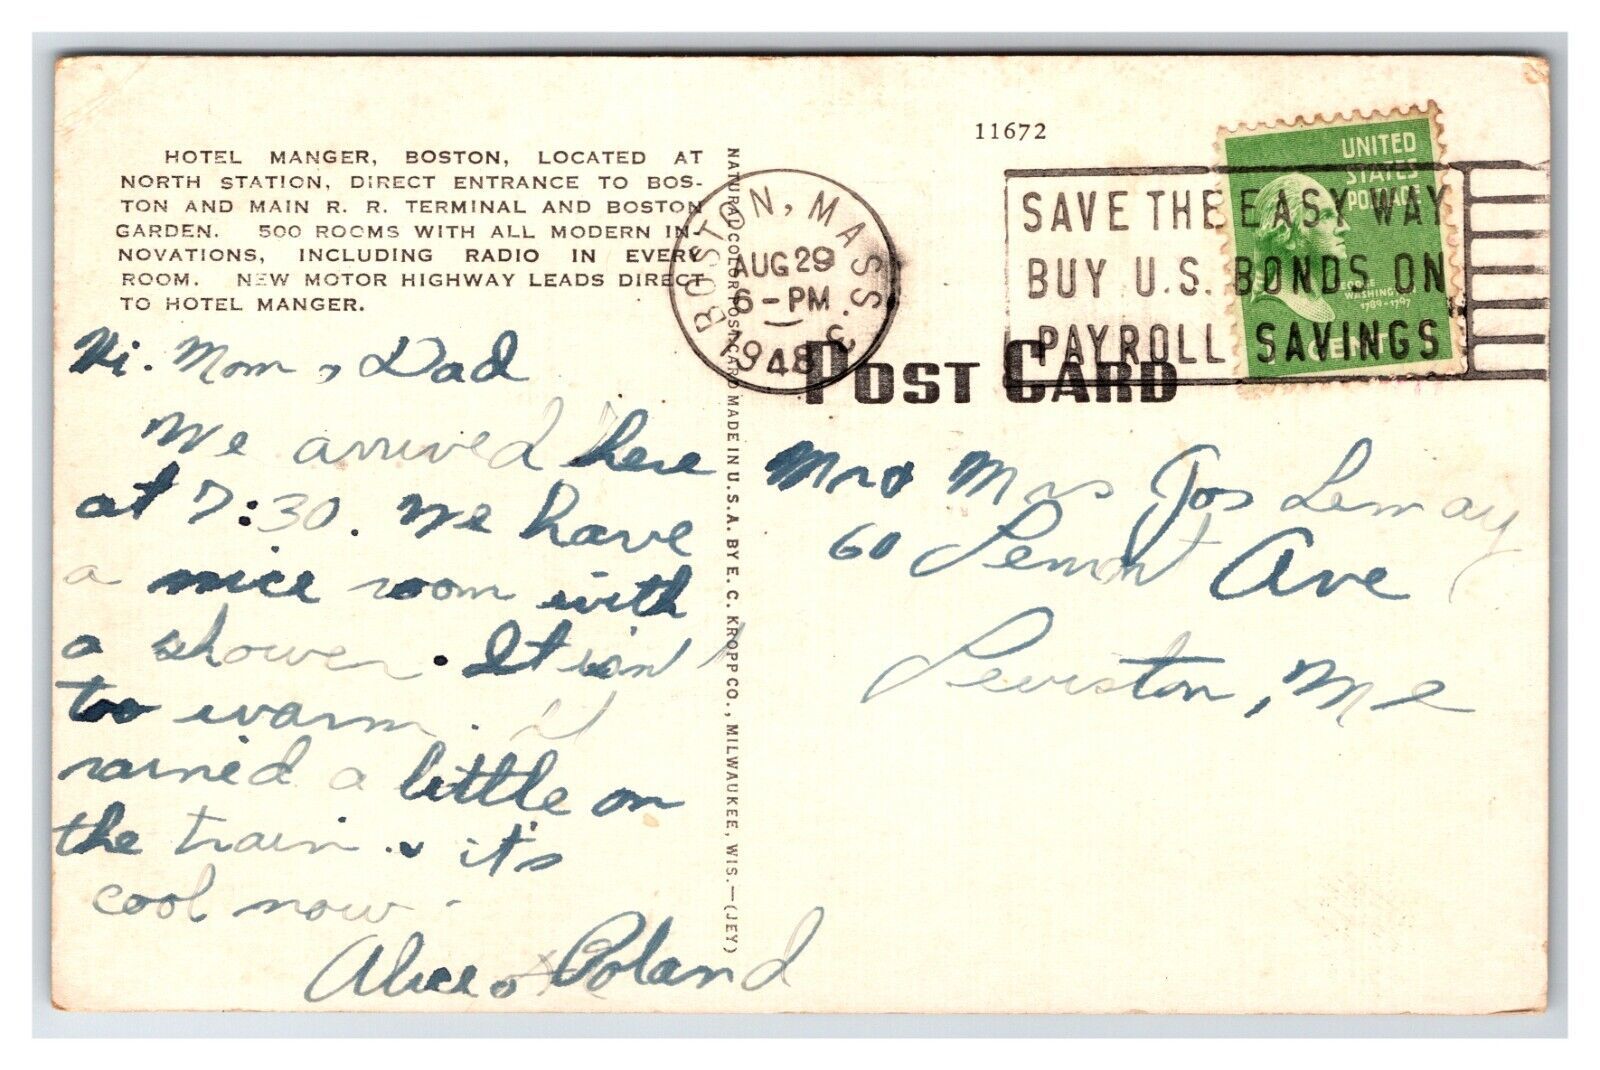 11672
HOTEL MANGER, BOSTON, LOCATED AT
NORTH STATION, DIRECT ENTRANCE TO BOS-
TON AND MAIN R. R. TERMINAL AND BOSTON
GARDEN. 500 ROOMS WITH ALL MODERN IN-
NOVATIONS, INCLUDING RADIO IN EVERY
ROOM. NEW MOTOR HIGHWAY LEADS DIRECT
TO HOTEL MANGER.
NATURAL COLOR POST CARD MADE IN U.S.A. BY E. C. KROPP CO., MILWAUKEE, WIS.—(JEY)
BOSTON, MASS.
AUG 29
6-PM
1948
SAVE THE EASY WAY
BUY U.S. BONDS ON
PAYROLL SAVINGS
UNITED
STATES
POSTAGE
WASHINGTON
1789-1797
CENT
POST CARD
Hi. Mom, Dad
We arrived here
at 7:30. We have
a nice room with
a shower. It isn't
too warm. it
rained a little on
the train. it's
cool now.
Alice & Roland
Mr & Mrs Jos Lemay
60 Lemont Ave
Lewiston, Me